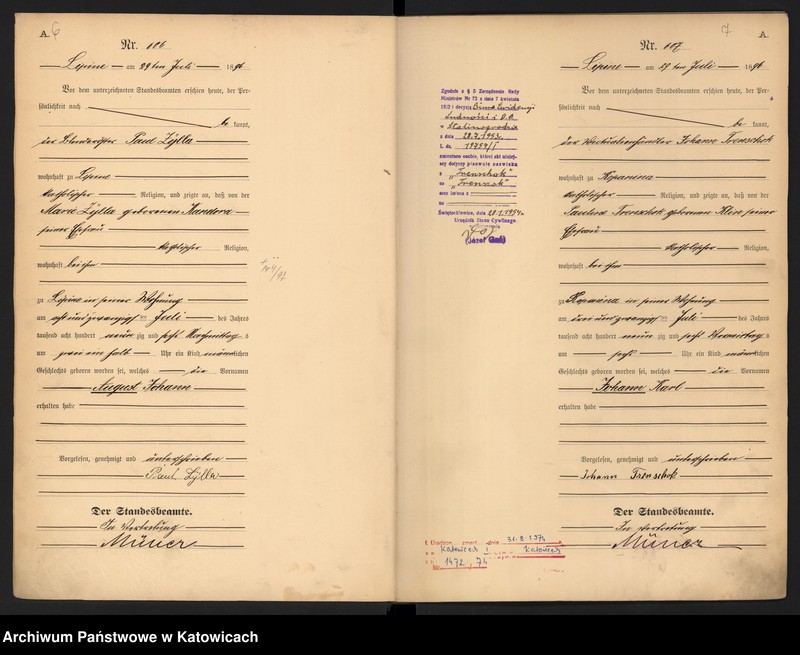 A.
6
Nr. 106
Lipine am 29ten Juli 1896
Vor dem unterzeichneten Standesbeamten erschien heute, der Per-
sönlichkeit nach
be kannt,
Paul Zylla
wohnhaft zu Lipine
katholischer Religion, und zeigte an, daß von der
Marie Zylla geborenen Kandora
seiner Ehefrau
katholischer Religion,
wohnhaft bei ihm
zu Lipine in seiner Wohnung
am acht und zwanzigsten Juli des Jahres
tausend acht hundert neun zig und sechs Nachmittags
um zwei ein halb Uhr ein Kind männlichen
Geschlechts geboren worden sei, welches die Vornamen
August Johann
erhalten habe
Vorgelesen, genehmigt und unterschrieben
Paul Zylla
Der Standesbeamte.
In Vertretung
7
A.
Nr. 107
Lipine am 29ten Juli 1896
Vor dem unterzeichneten Standesbeamten erschien heute, der Per-
sönlichkeit nach
be kannt,
der Viktualienhändler Johann Trenschok
wohnhaft zu Kopanina
katholischer Religion, und zeigte an, daß von der
Trenschok geborenen seiner
Ehefrau
katholischer Religion,
wohnhaft bei ihm
zu Kopanina in seiner Wohnung
am Juli des Jahres
tausend acht hundert neun zig und sechs Vormittags
um sechs Uhr ein Kind männlichen
Geschlechts geboren worden sei, welches die Vornamen
Johann Karl
erhalten habe
Vorgelesen, genehmigt und unterschrieben
Johann Trenschok
Der Standesbeamte.
In Vertretung
Zgodnie z § 5 Zarządzenia Rady
Ministrów Nr 73 z dnia 7 kwietnia
1952 i decyzją Biura Ewidencji
Ludności i D.O.
w Stalinogrodzie
z dnia
L. dz.
zmieniono osobie, której akt niniej-
szy dotyczy pisownię nazwiska
z „Trenschok"
na „Trenszok"
oraz imienia z
na
Świętochłowice, dnia 28.1.1954r.
Urzędnik Stanu Cywilnego
dnia 31.8.1974
Katowice Katowicach
1472 74
Archiwum Państwowe w Katowicach